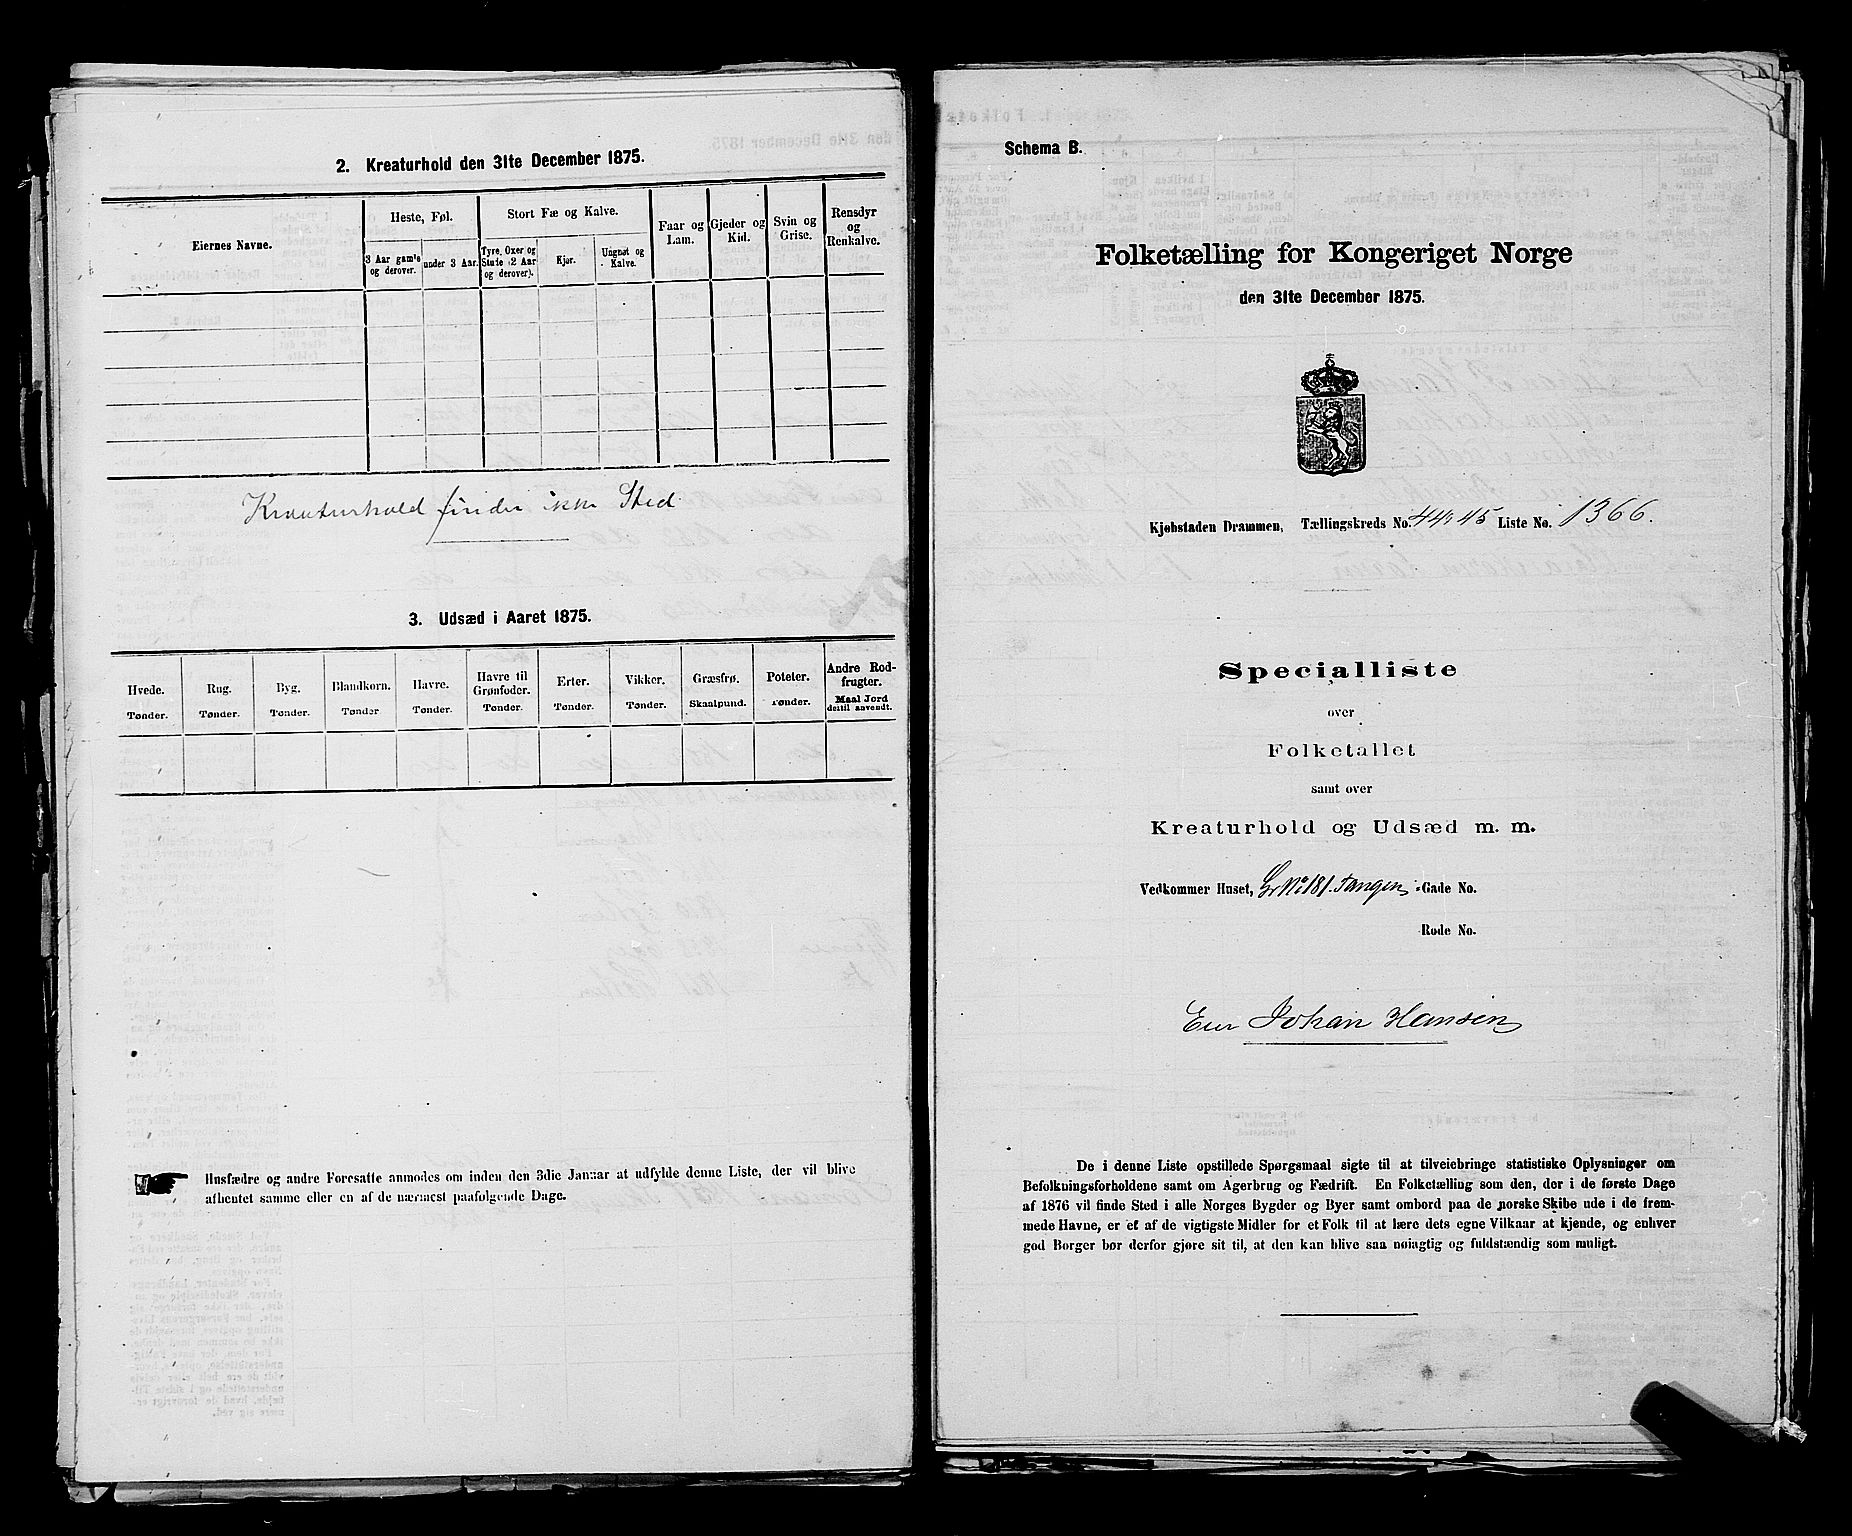 2. Kreaturhold den 31te December 1875.
Eiernes Navne.
Heste, Føl.
Stort Fæ og Kalve.
Faar og Lam.
Gjeder og Kid.
Svin og Grise.
Rensdyr og Renkalve.
3 Aar gamle og derover.
under 3 Aar.
Tyre, Oxer og Stude (2 Aar og derover).
Kjør.
Ungnøt og Kalve.
Kreaturhold finder ikke Sted
3. Udsæd i Aaret 1875.
Hvede. Rug. Byg. Blandkorn. Havre. Havre til Grønfoder. Erter. Vikker. Græsfrø. Poteter. Andre Rodfrugter.
Tønder. Tønder. Tønder. Tønder Tønder. Tønder. Tønder. Tønder. Skaalpund. Tønder. Maal Jord dertil anvendt.
Husfædre og andre Foresatte anmodes om inden den 3die Januar at udfylde denne Liste, der vil blive
afhentet samme eller en af de nærmest paafølgende Dage.
Schema B.
Folketælling for Kongeriget Norge
den 31te December 1875.
Kjøbstaden Drammen, Tællingskreds No. 44 & 45 Liste No. 1366.
Specialliste
over
Folketallet
samt over
Kreaturhold og Udsæd m. m.
Vedkommer Huset, Gr No 181. Tangen -Gade No.
Rode No.
Eier Johan Hansen
De i denne Liste opstillede Spørgsmaal sigte til at tilveiebringe statistiske Oplysninger om
Befolkningsforholdene samt om Agerbrug og Fædrift. En Folketælling som den, der i de første Dage
af 1876 vil finde Sted i alle Norges Bygder og Byer samt ombord paa de norske Skibe ude i de frem-
mede Havne, er et af de vigtigste Midler for et Folk til at lære dets egne Vilkaar at kjende, og enhver
god Borger bør derfor gjøre sit til, at den kan blive saa nøiagtig og fuldstændig som muligt.